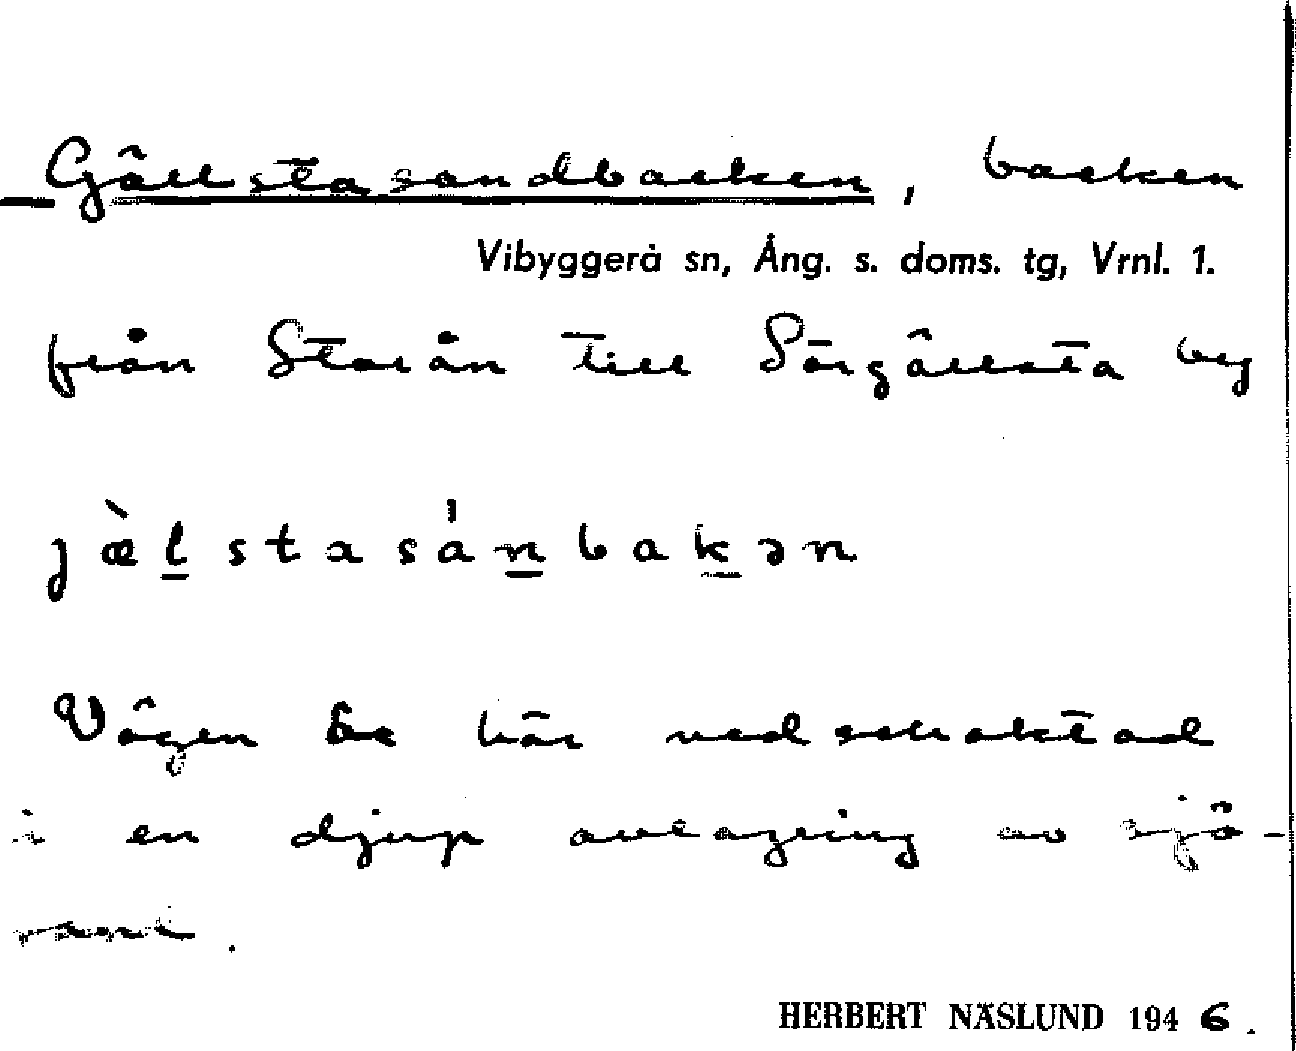 Gällstasandbacken, backen
Vibyggerå sn, Ång. s. doms. tg, Vrnl. 1.
från Storån till Sörgällsta by
jæ̀l̲stasá̍n̲bak̲ən
Vägen är här nedschaktad
i en djup avlagring av sjö-
sand.
HERBERT NÄSLUND 1946.